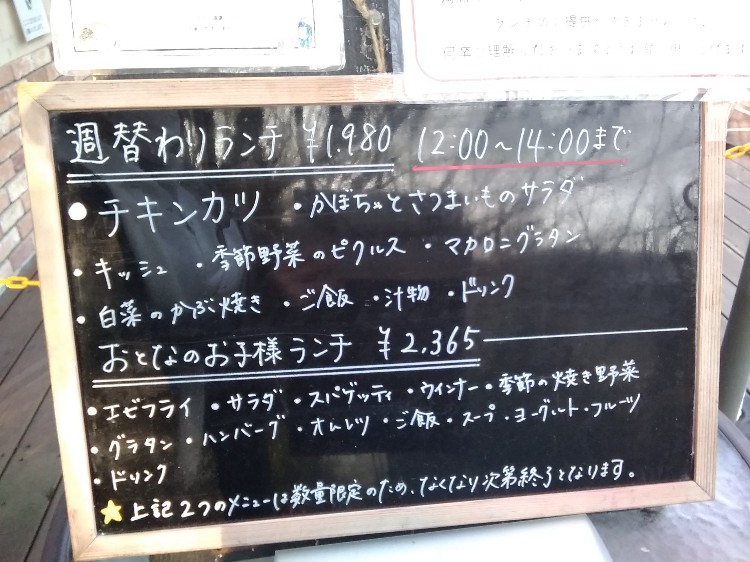 週替わりランチ ¥1,980 12:00～14:00まで
・チキンカツ ・かぼちゃとさつまいものサラダ
・キッシュ ・季節野菜のピクルス ・マカロニグラタン
・白菜のかぶ焼き ・ご飯 ・汁物 ・ドリンク
おとなのお子様ランチ ¥2,365
・エビフライ ・サラダ ・スパゲッティ ・ウインナー ・季節の焼き野菜
・グラタン ・ハンバーグ ・オムレツ ・ご飯 ・スープ ・ヨーグルト ・フルーツ
・ドリンク
★上記2つのメニューは数量限定のため、なくなり次第終了となります。